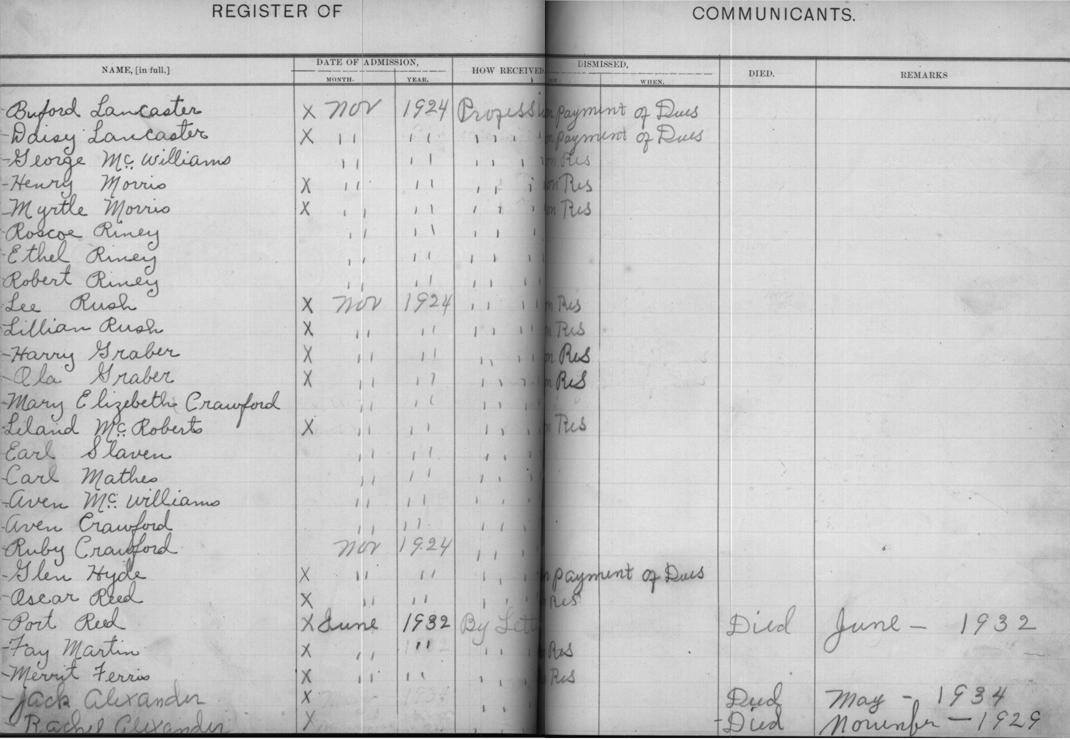 REGISTER OF COMMUNICANTS.
NAME, [in full.] DATE OF ADMISSION, HOW RECEIVED DISMISSED, DIED. REMARKS
MONTH. YEAR. WHEN.
Buford Lancaster X Nov 1924 Profess payment of Dues
Daisy Lancaster X " " " " payment of Dues
George Mc Williams " " " " on Res
Henry Morris X " " " " on Res
Myrtle Morris X " " " " on Res
Roscoe Riney " " " "
Ethel Riney " " " "
Robert Riney " " " "
Lee Rush X Nov 1924 " " on Res
Lillian Rush X " " " " on Res
Harry Graber X " " " " on Res
Ola Graber X " " " " on Res
Mary Elizebeth Crawford " " " "
Leland Mc Roberts X " " " " on Res
Earl Slaven " " " "
Carl Mathes " " " "
Aven Mc Williams " " " "
Aven Crawford " " " "
Ruby Crawford Nov 1924 " "
Glen Hyde X " " " " payment of Dues
Oscar Reed X " " " " Res
Port Reed X June 1932 By Lett Died June - 1932
Fay Martin X " " " " Res
Merrit Ferris X " " " " Res
Jack Alexander X Died May - 1934
Rachel Alexander X Died November - 1929